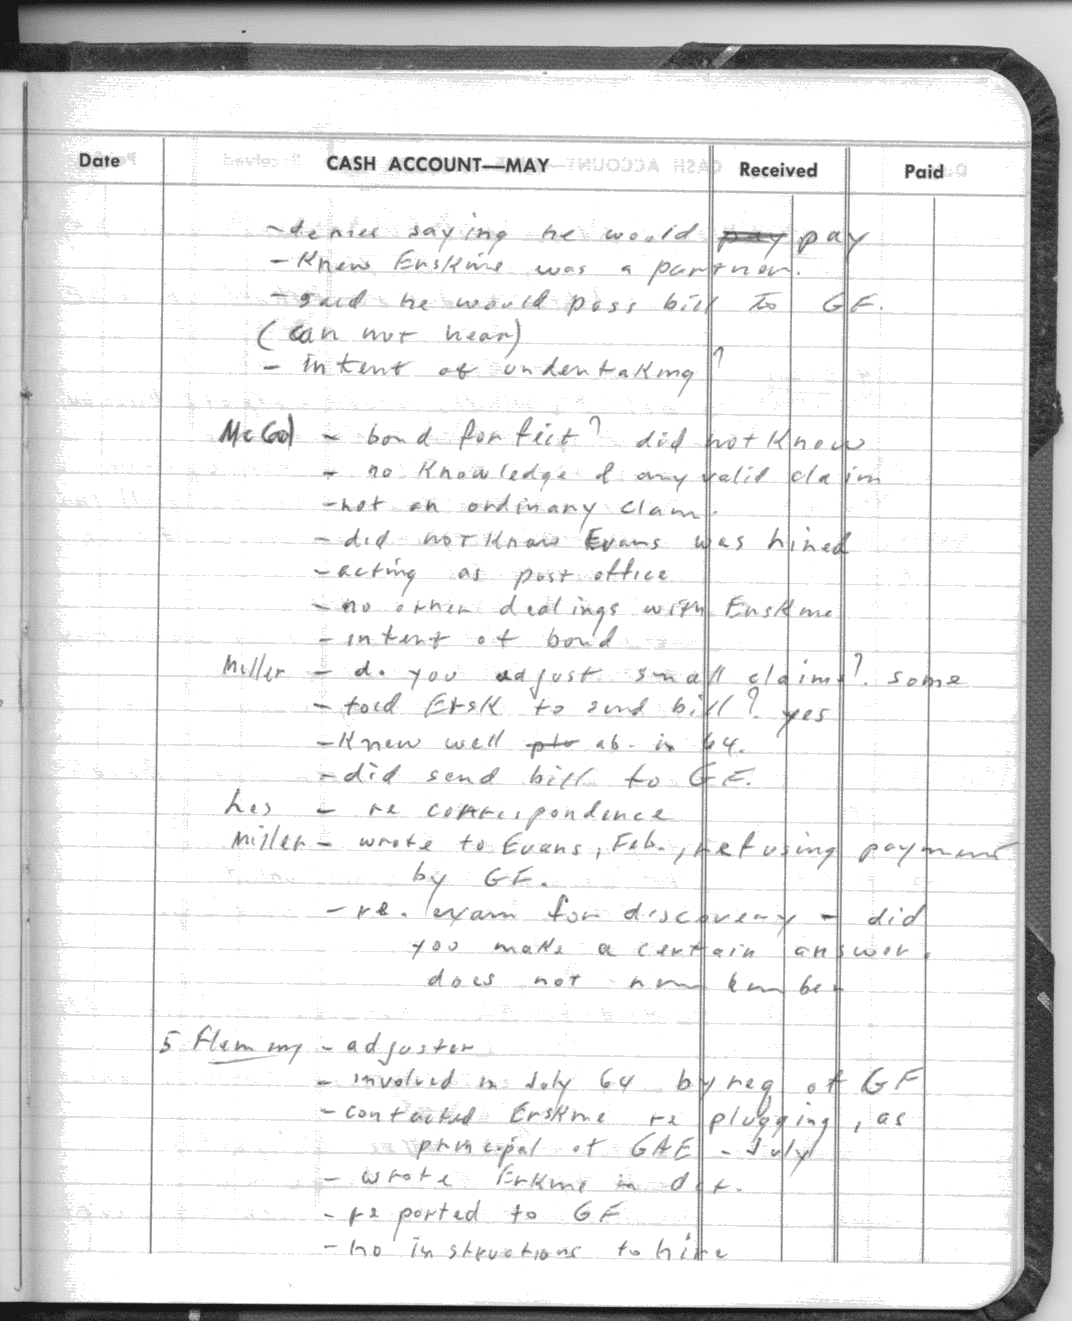 Date CASH ACCOUNT—MAY Received Paid
- denies saying he would pay pay
- Knew Erskine was a partner.
- said he would pass bill to GF.
(can not hear)
- intent of undertaking ?
McGol - bond forfeit? did not Know
- no Knowledge of any valid claim
- not an ordinary claim.
- did not Know Evans was hired
- acting as post office
- no other dealings with Erskine
- intent of bond
Miller - do you adjust small claim? some
- told Ersk to send bill? yes
- Knew well ab. in 64.
- did send bill to GF.
Les - re correspondence
Miller - wrote to Evans, Feb., refusing payment
by GF.
- re. exam for discovery - did
you make a certain answer.
does not remember
5 Fleming - adjuster
- involved in July 64 by req of GF
- contacted Erskine re plugging, as
principal of GAE - July
- wrote Erkine in
- reported to GF
- no instructions to hire